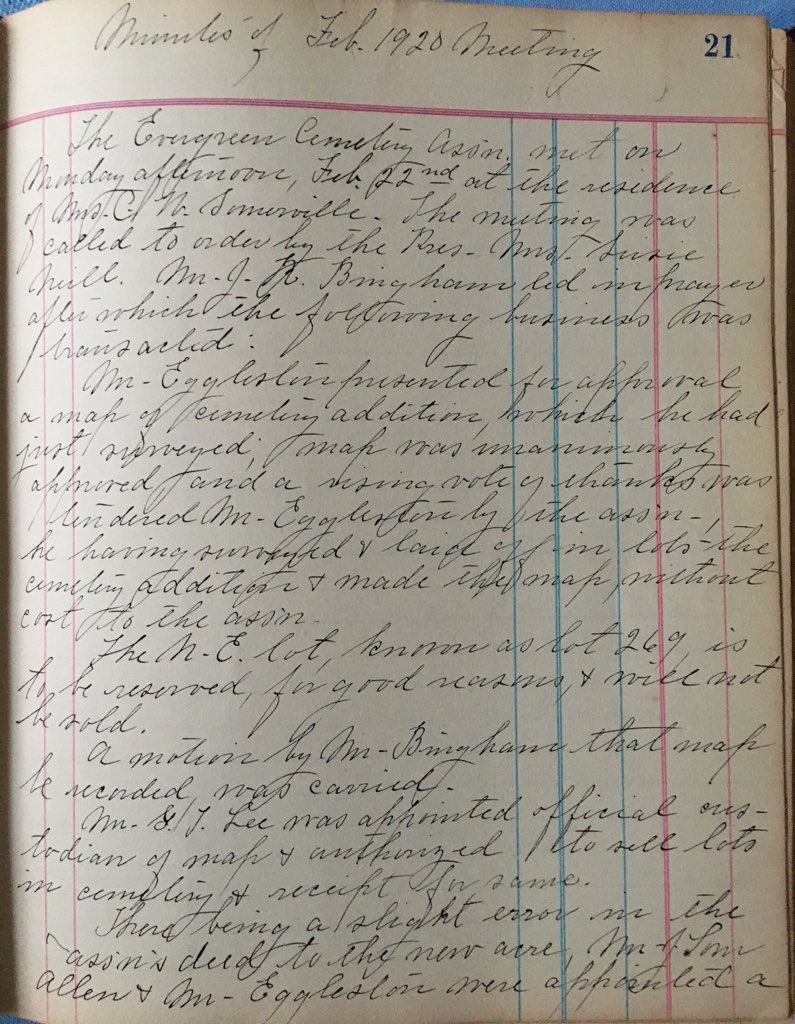 Minutes of Feb. 1920 Meeting
21
The Evergreen Cemetery Assn. met on
Monday afternoon, Feb. 22nd at the residence
of Mrs. C. W. Somerville. The meeting was
called to order by the Pres- Mrs. Susie
Neill. Mr. J. K. Bingham led in prayer
after which the following business was
transacted:
Mr- Eggleston presented for approval
a map of cemetery addition, which he had
just surveyed; map was unanimously
approved and a rising vote of thanks was
tendered Mr- Eggleston by the assn-,
he having surveyed & laid off in lots the
cemetery addition & made the map, without
cost to the assn.
The N-E. lot, known as lot 269, is
to be reserved, for good reasons, & will not
be sold.
A motion by Mr- Bingham that map
be recorded, was carried.
Mr- T. Lee was appointed official cus-
todian of map & authorized to sell lots
in cemetery & receipt for same.
There being a slight error in the
assn's deed to the new acre, Mr- Tom
Allen & Mr- Eggleston were appointed a